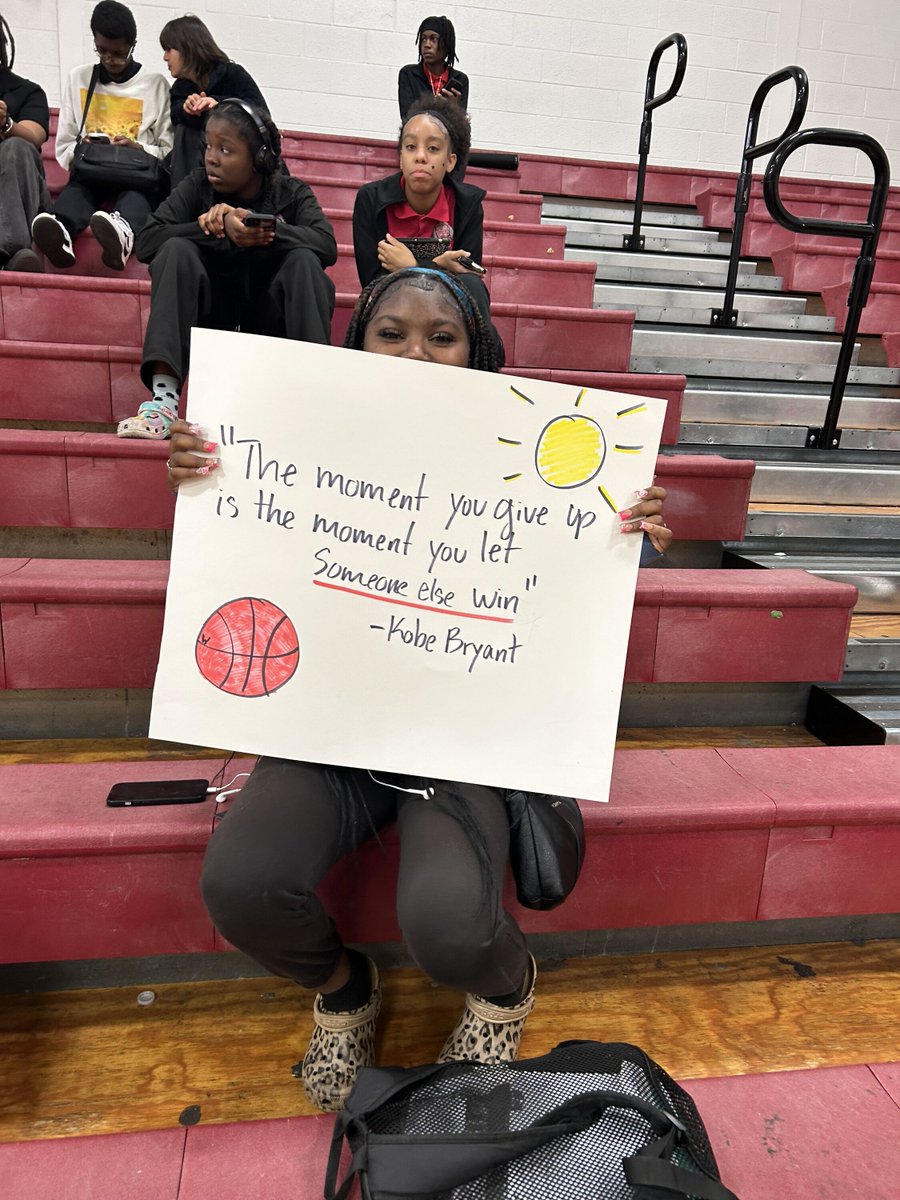 "The moment you give up
is the moment you let
Someone else win"
-Kobe Bryant